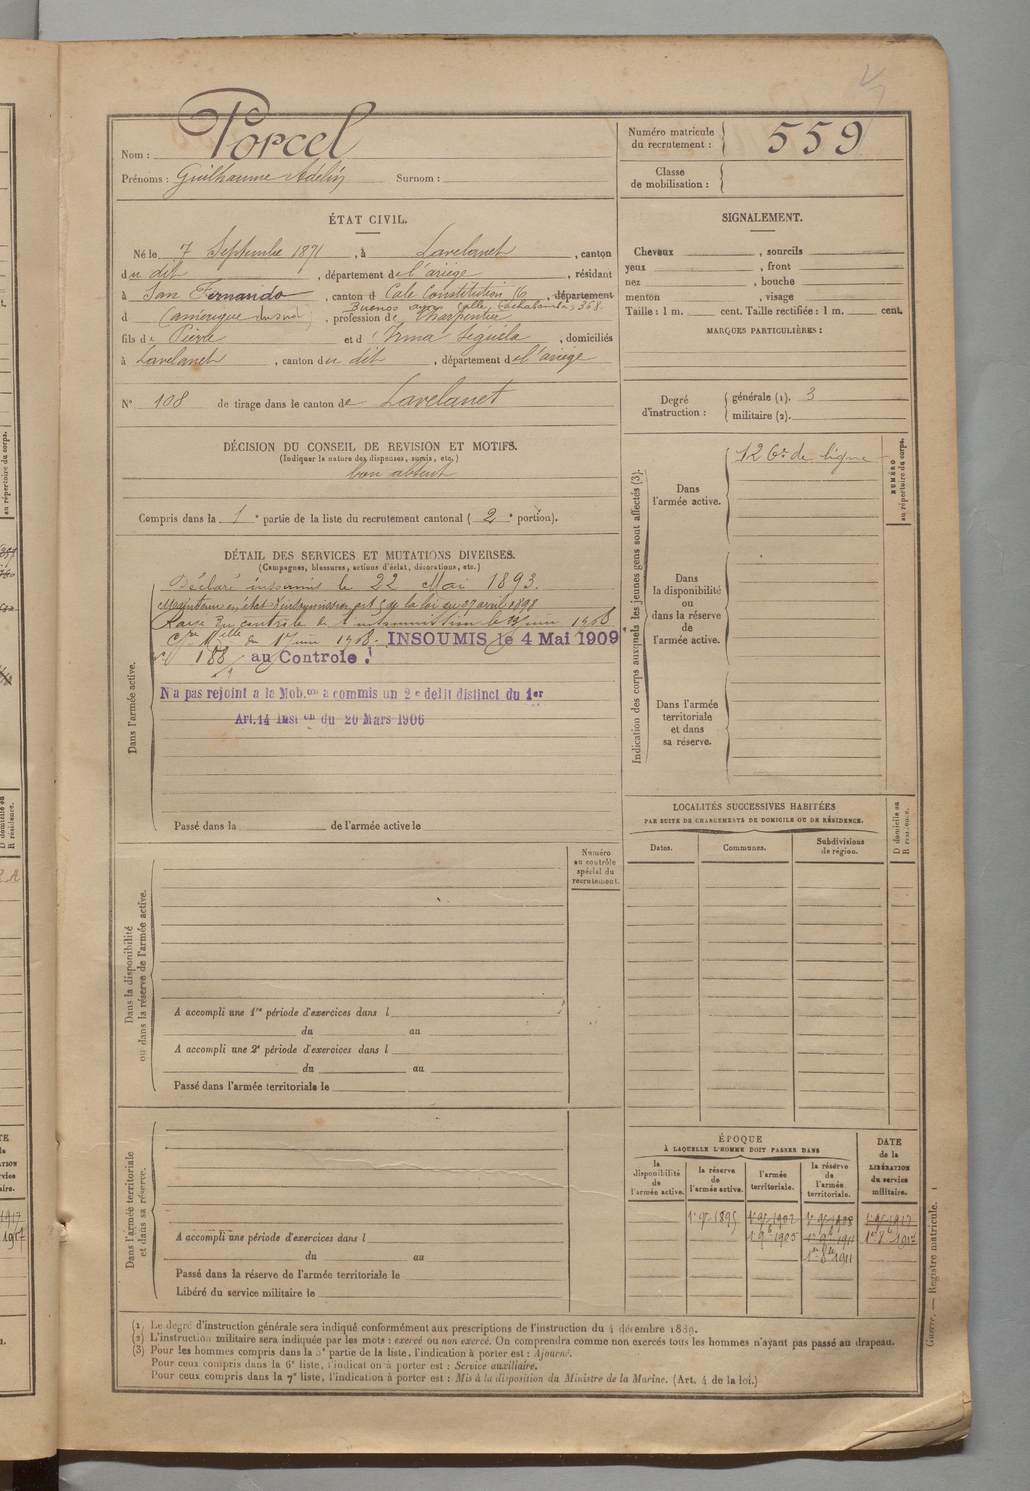 Nom : Porcel
Prénoms : Guilhaume Adelin Surnom :
Numéro matricule
du recrutement : 559
Classe
de mobilisation :
ÉTAT CIVIL.
Né le 7 Septembre 1871, à Lavelanet, canton
du dit, département de l'ariège, résidant
à San Fernando, canton d Cale Constitution 16, département
Buenos ayres calle, Cachabamba, 368.
d (amérique du sud), profession de Charpentier
fils de Pierre et d'Irma Séguéla, domiciliés
à Lavelanet, canton du dit, département de l'ariège
N° 108 de tirage dans le canton de Lavelanet
DÉCISION DU CONSEIL DE REVISION ET MOTIFS.
(Indiquer la nature des dispenses, sursis, etc.)
bon absent
Compris dans la 1e partie de la liste du recrutement cantonal (2e portion).
DÉTAIL DES SERVICES ET MUTATIONS DIVERSES.
(Campagnes, blessures, actions d'éclat, décorations, etc.)
Dans l'armée active.
Déclaré insoumis le 22 Mai 1893.
Maintenu en état d'insoumission art 5 de la loi du 27 avril 1898
Rayé du contrôle de l'insoumission le juin 1908
du 1er juin 1908. INSOUMIS le 4 Mai 1909
188 au Controle !
N'a pas rejoint a la Mob.on a commis un 2e delit distinct du 1er
Art. 14 Inst on du 20 Mars 1906
Passé dans la de l'armée active le
Dans la disponibilité
ou dans la réserve de l'armée active.
Numéro
au contrôle
spécial du
recrutement.
A accompli une 1re période d'exercices dans l
du au
A accompli une 2e période d'exercices dans l
du au
Passé dans l'armée territoriale le
Dans l'armée territoriale
et dans sa réserve.
A accompli une période d'exercices dans l
du au
Passé dans la réserve de l'armée territoriale le
Libéré du service militaire le
SIGNALEMENT.
Cheveux , sourcils
yeux , front
nez , bouche
menton , visage
Taille : 1 m. cent. Taille rectifiée : 1 m. cent.
MARQUES PARTICULIÈRES :
Degré
d'instruction :
générale (1). 3
militaire (2).
Indication des corps auxquels les jeunes gens sont affectés (3).
NUMÉRO
au répertoire du corps.
Dans
l'armée active.
126e de ligne
Dans
la disponibilité
ou
dans la réserve
de
l'armée active.
Dans l'armée
territoriale
et dans
sa réserve.
LOCALITÉS SUCCESSIVES HABITÉES
PAR SUITE DE CHANGEMENTS DE DOMICILE OU DE RÉSIDENCE.
Dates. Communes. Subdivisions
de région.
D domicile ou
R résidence.
ÉPOQUE
À LAQUELLE L'HOMME DOIT PASSER DANS
la
disponibilité
de
l'armée active.
la réserve
de
l'armée active.
l'armée
territoriale.
la réserve
de
l'armée
territoriale.
DATE
de la
LIBÉRATION
du service
militaire.
1er 9bre 1895 1er 9bre 1902 1er 9bre 1908 1er 9bre 1917
1er 9b 1905 1er 9b 1911 1er 8b 1917
1er 8bre 1911
(1) Le degré d'instruction générale sera indiqué conformément aux prescriptions de l'instruction du 4 décembre 1889.
(2) L'instruction militaire sera indiquée par les mots : exercé ou non exercé. On comprendra comme non exercés tous les hommes n'ayant pas passé au drapeau.
(3) Pour les hommes compris dans la 5e partie de la liste, l'indication à porter est : Ajourné.
Pour ceux compris dans la 6e liste, l'indication à porter est : Service auxiliaire.
Pour ceux compris dans la 7e liste, l'indication à porter est : Mis à la disposition du Ministre de la Marine. (Art. 4 de la loi.)
Guerre. — Registre matricule. 1